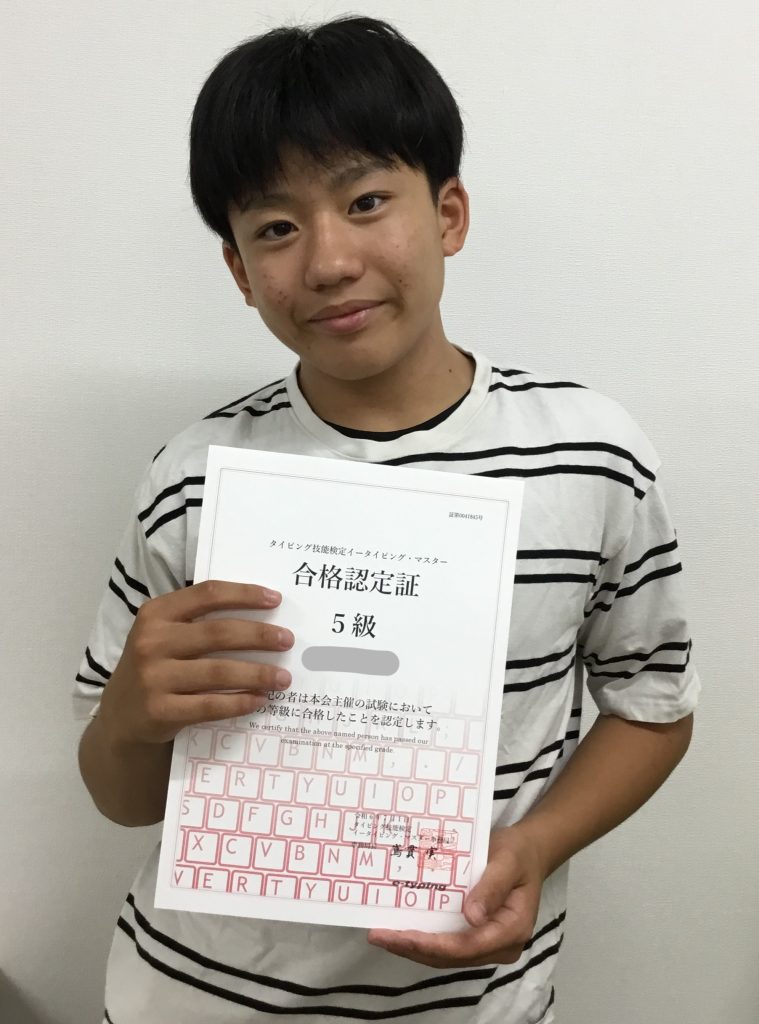 証第0041845号
タイピング技能検定イータイピング・マスター
合格認定証
5級
記の者は本会主催の試験において
の等級に合格したことを認定します。
We certify that the above named person has passed our
examination at the specified grade.
X C V B N M , . /
E R T Y U I O P
S D F G H J
X C V B N M , /
V E R T Y U I O P
タイピング技能検定
イータイピング・マスター事務局
e-typing